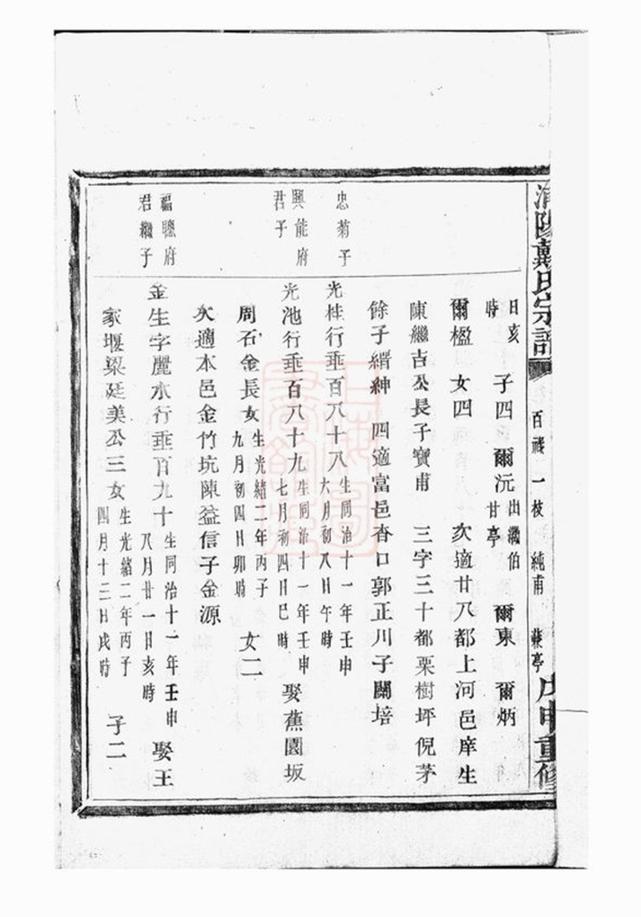 浦陽戴氏宗譜 百 一枝 純甫 兼亭 戊申重修
日亥時 子四 爾沅 出繼伯甘亭 爾東 爾炳
爾楹 女四 次適廿八都上河邑庠生
陳繼吉公長子寶甫 三字三十都栗樹坪倪茅
餘子縉紳 四適富邑杳口郭正川子關培
忠菊子
光桂行垂百八十八 生同治十一年壬申六月初八日午時
興能府君子
光池行垂百八十九 生同治十一年壬申七月初四日巳時 娶蕉園坂
周石金長女 生光緒二年丙子九月初四日卯時 女二
次適本邑金竹坑陳益信子金源
福聰府君繼子
金生字麗水行垂百九十 生同治十一年壬申八月廿一日亥時 娶王
家堰梁廷美公三女 生光緒二年丙子四月十三日戌時 子二